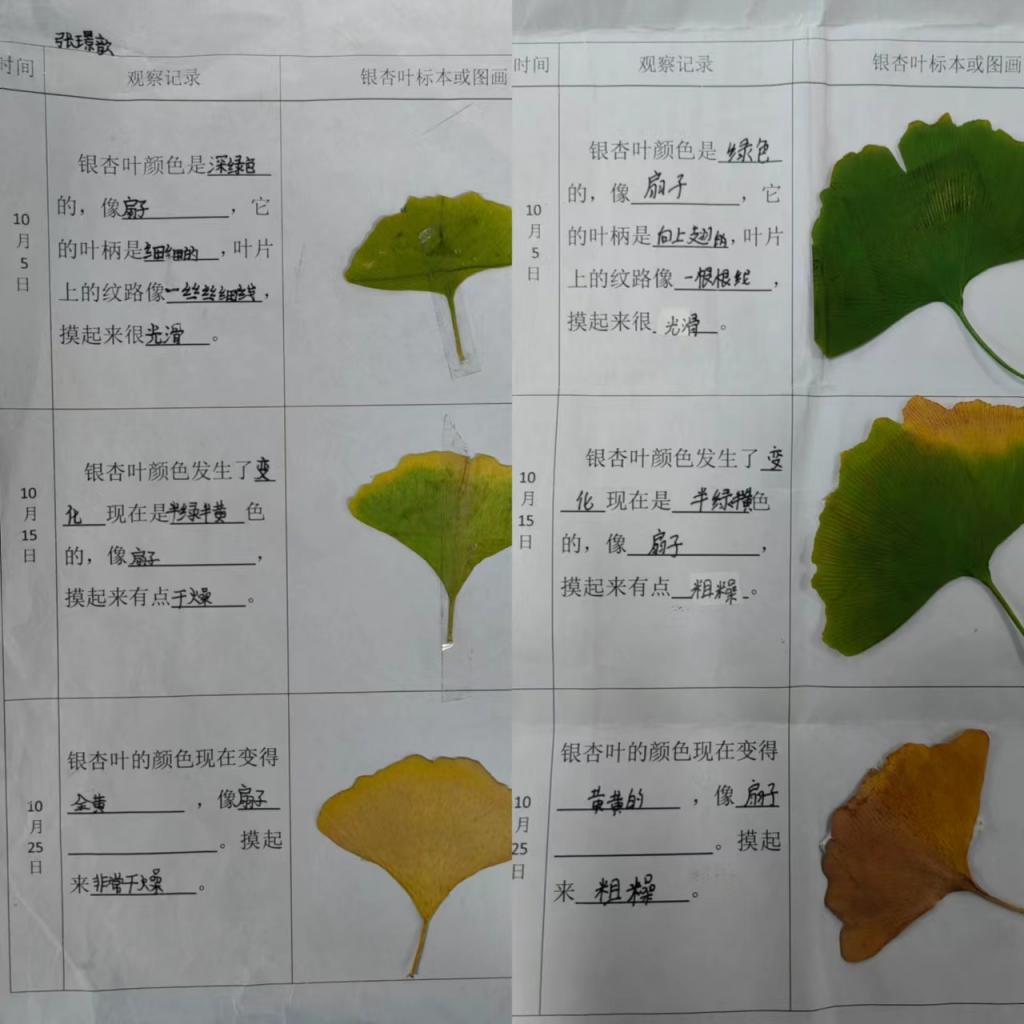 张璟歆
时间 观察记录 银杏叶标本或图画
10月5日
银杏叶颜色是深绿色
的，像扇子，它
的叶柄是细细的，叶片
上的纹路像一丝丝细线，
摸起来很光滑。
10月15日
银杏叶颜色发生了变
化 现在是半绿半黄色
的，像扇子，
摸起来有点干燥。
10月25日
银杏叶的颜色现在变得
金黄，像扇子
。摸起
来非常干燥。
时间 观察记录 银杏叶标本或图画
10月5日
银杏叶颜色是绿色
的，像扇子，它
的叶柄是向上翘的，叶片
上的纹路像一根根丝，
摸起来很光滑。
10月15日
银杏叶颜色发生了变
化 现在是半绿半黄色
的，像扇子，
摸起来有点粗糙。
10月25日
银杏叶的颜色现在变得
黄黄的，像扇子
。摸起
来粗糙。